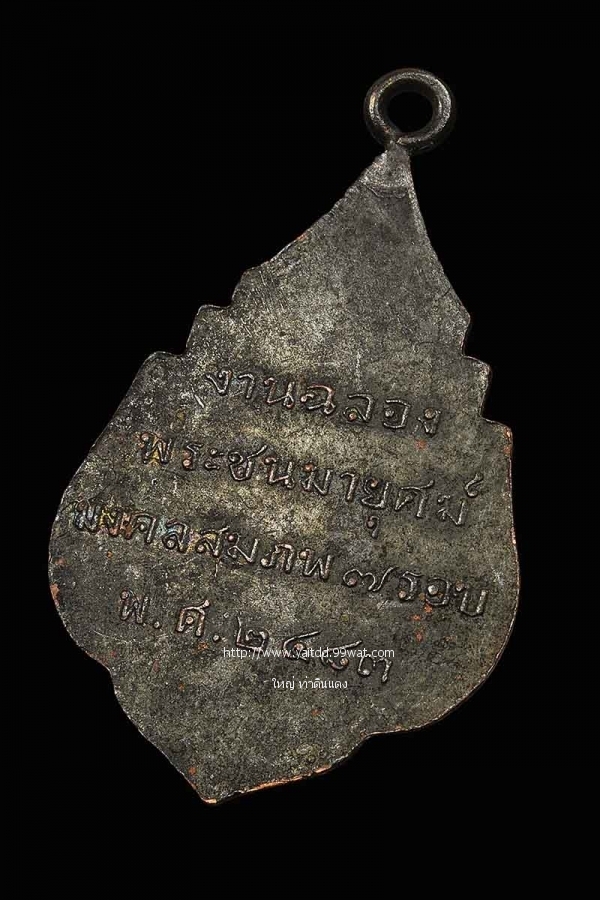 งานฉลอง
พระชนมายุศม์
มงคลสมภพ ๗ รอบ
พ.ศ.๒๔๘๓
http://www.yaitdd.99wat.com
ใหญ่ ท่าดินแดง